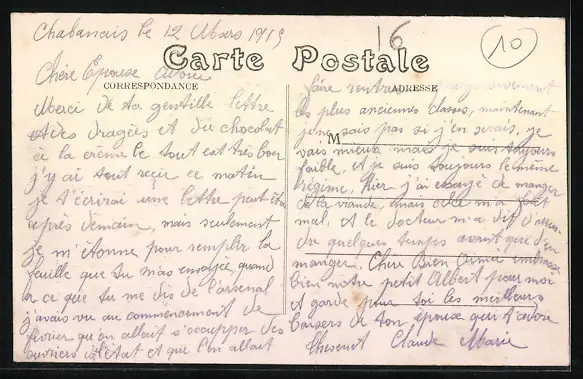 Chabanais le 12 Mars 1915
16
10
Carte Postale
CORRESPONDANCE
ADRESSE
M
Chère Epouse
Merci de ta gentille lettre
et des dragées et du chocolat
à la crème le tout est très bon
j'y ai tout reçu ce matin
je t'écrirai une lettre peut être
après demain, mais seulement
je m'étonne pour remplir la
feuille que tu m'as envoyée, quand
a ce que tu me dis de l'arsenal
j'avais vu au commencement de
février qu'on allait s'occupper des
ouvriers d'état et que l'on allait
faire rentrer
les plus anciennes classes, maintenant
je ne sais pas si j'en serais, je
vais mieux mais je suis toujours
faible, et je suis toujours le même
régime, hier j'ai essayé de manger
de la viande, mais cela m'a fait
mal, et le docteur m'a dit d'atten-
dre quelques temps avant que d'en
manger. Chère Bien Aimée embrasse
bien notre petit Albert pour moi
et garde pour toi les meilleurs
baisers de ton époux qui t'adore
Claude Marie